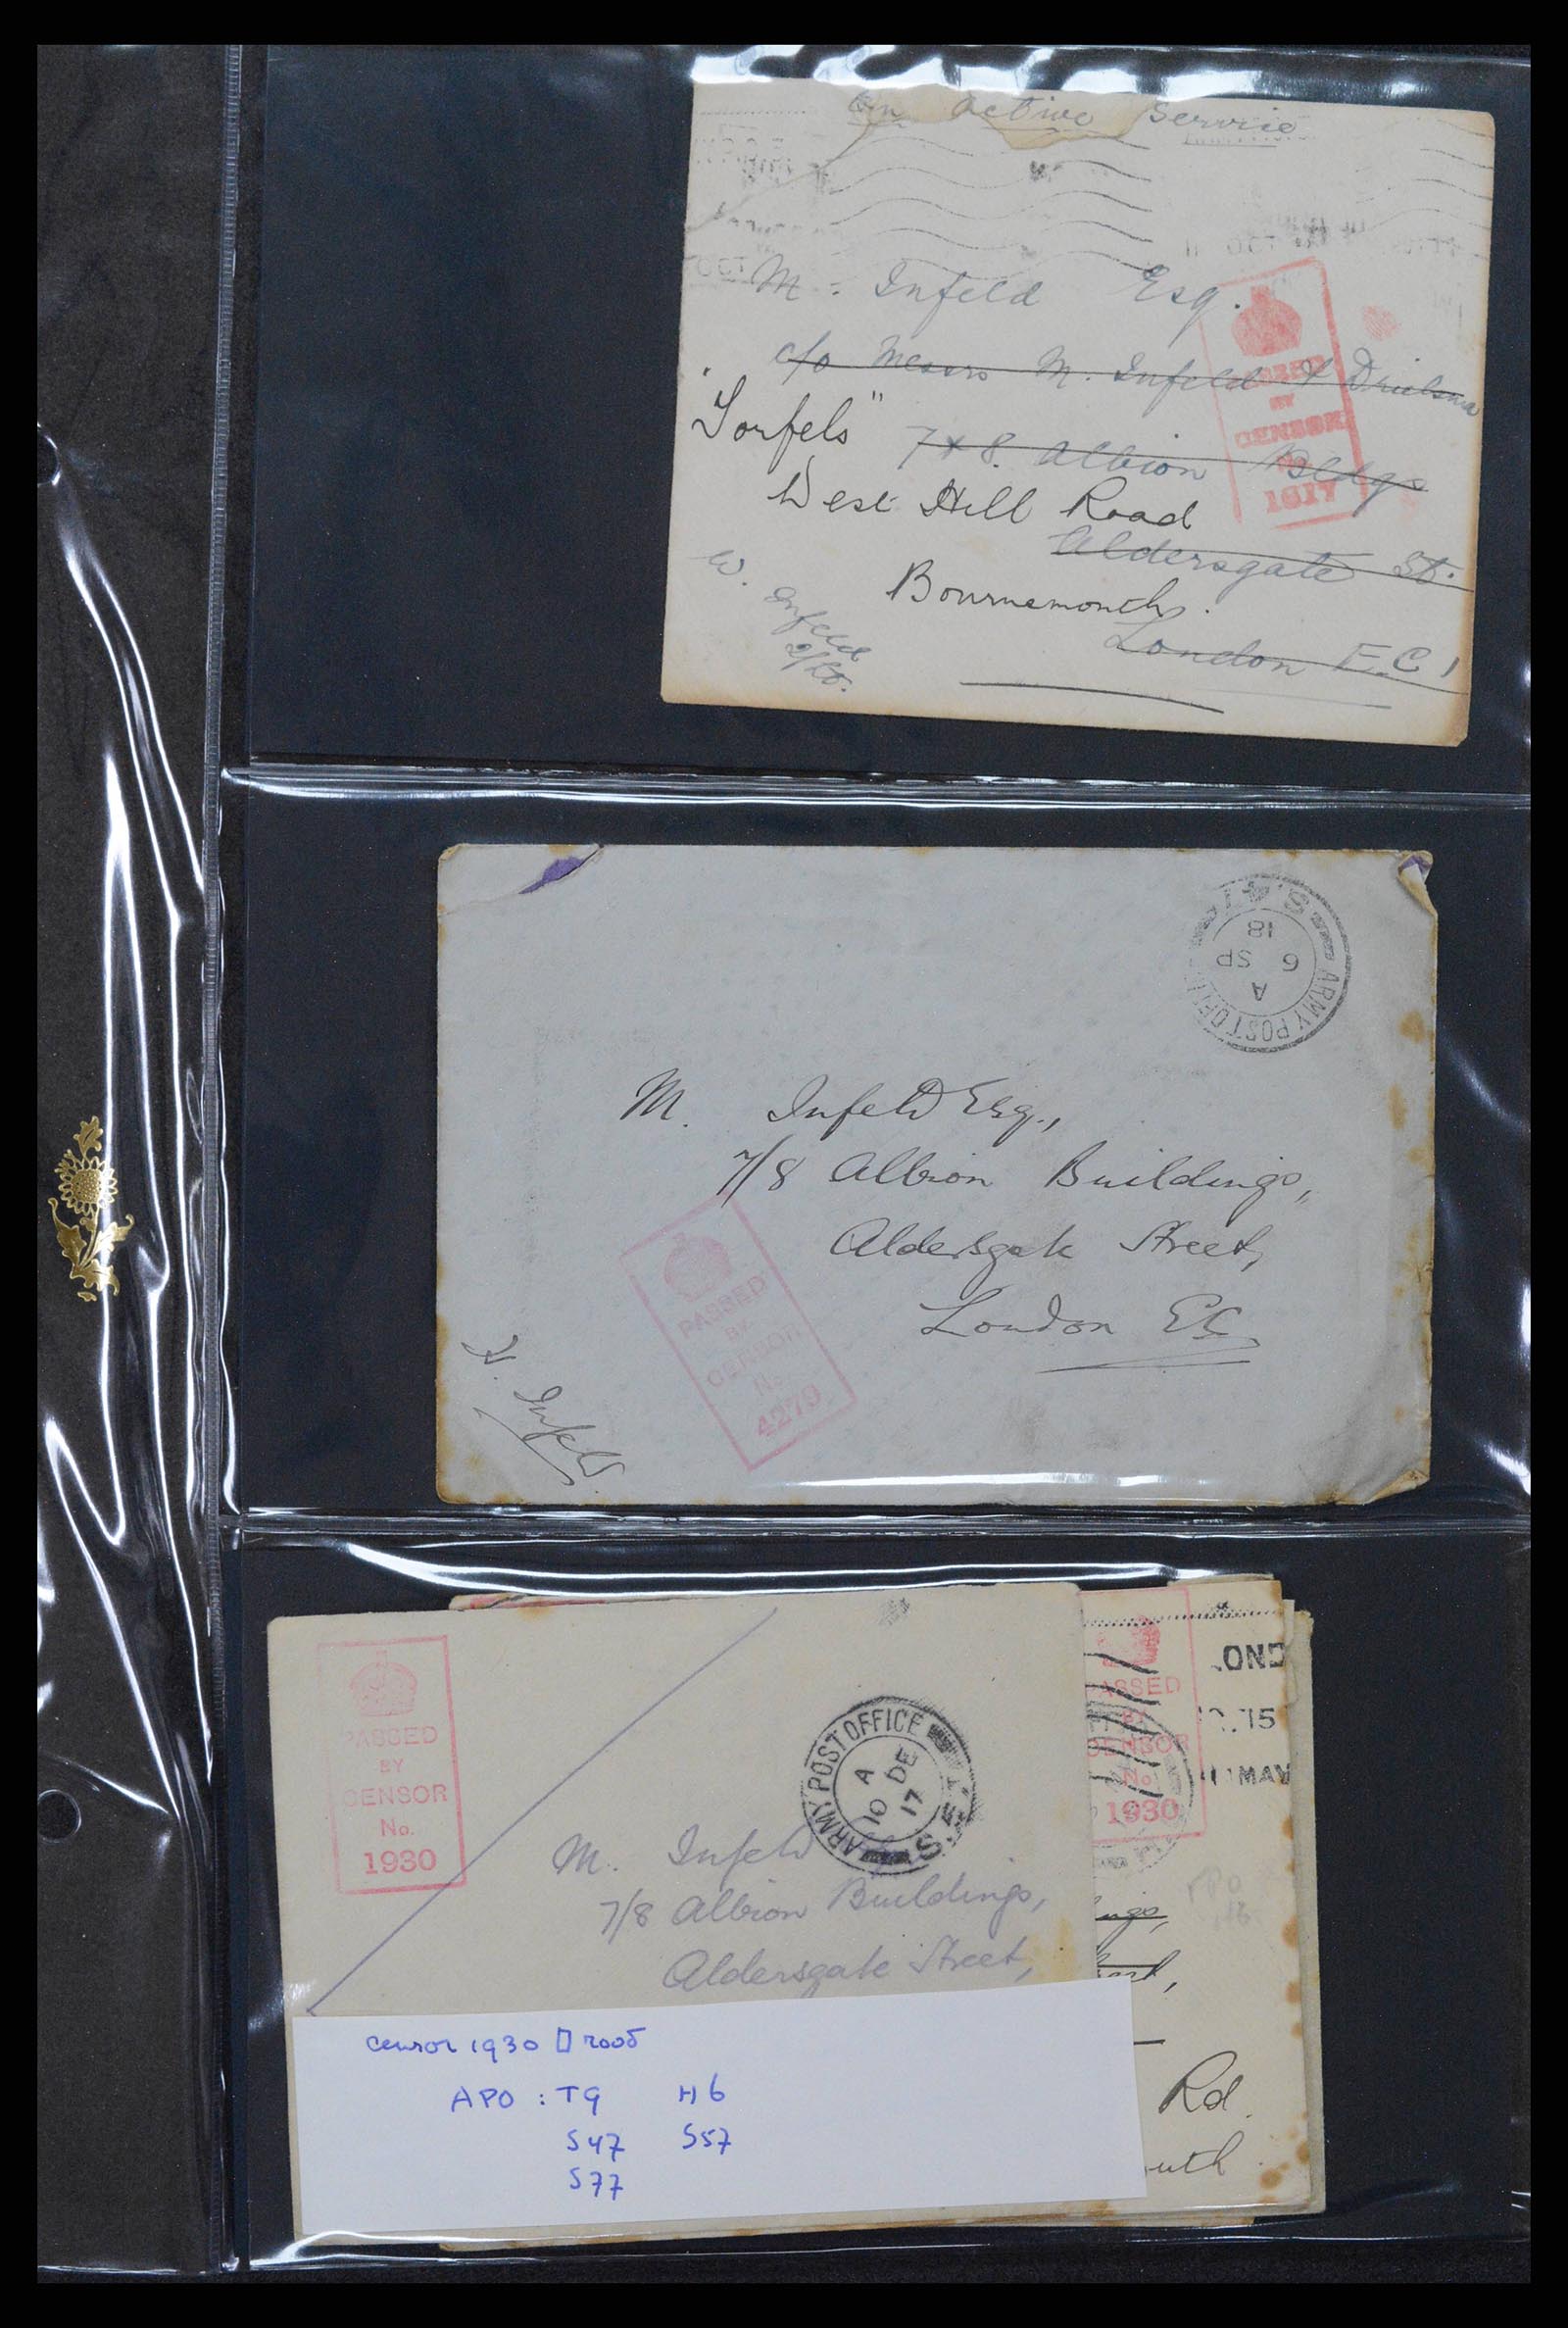 On Active Service
OCT
M. Infeld Esq.
c/o Messrs M. Infeld & Drielsma
"Torfels"
7 & 8. Albion Bldgs
West Hill Road
Aldersgate St.
Bournemouth.
London E.C.1
W. Infeld
2/Lt.
PASSED
BY
CENSOR
No
1617
ARMY POST OFFICE
S.41
A
6 SP
18
M. Infeld Esq.,
7/8 Albion Buildings,
Aldersgate Street,
London EC
PASSED
BY
CENSOR
No.
4279
H. Infeld
PASSED
BY
CENSOR
No.
1930
ARMY POST OFFICE
A
10 DE
17
M. Infeld
7/8 Albion Buildings,
Aldersgate Street,
PASSED
BY
CENSOR
No.
1930
OND
.15
MAY
ings,
Rd.
outh
censor 1930 ▯ rood
APO : T9 H6
S47 S57
S77